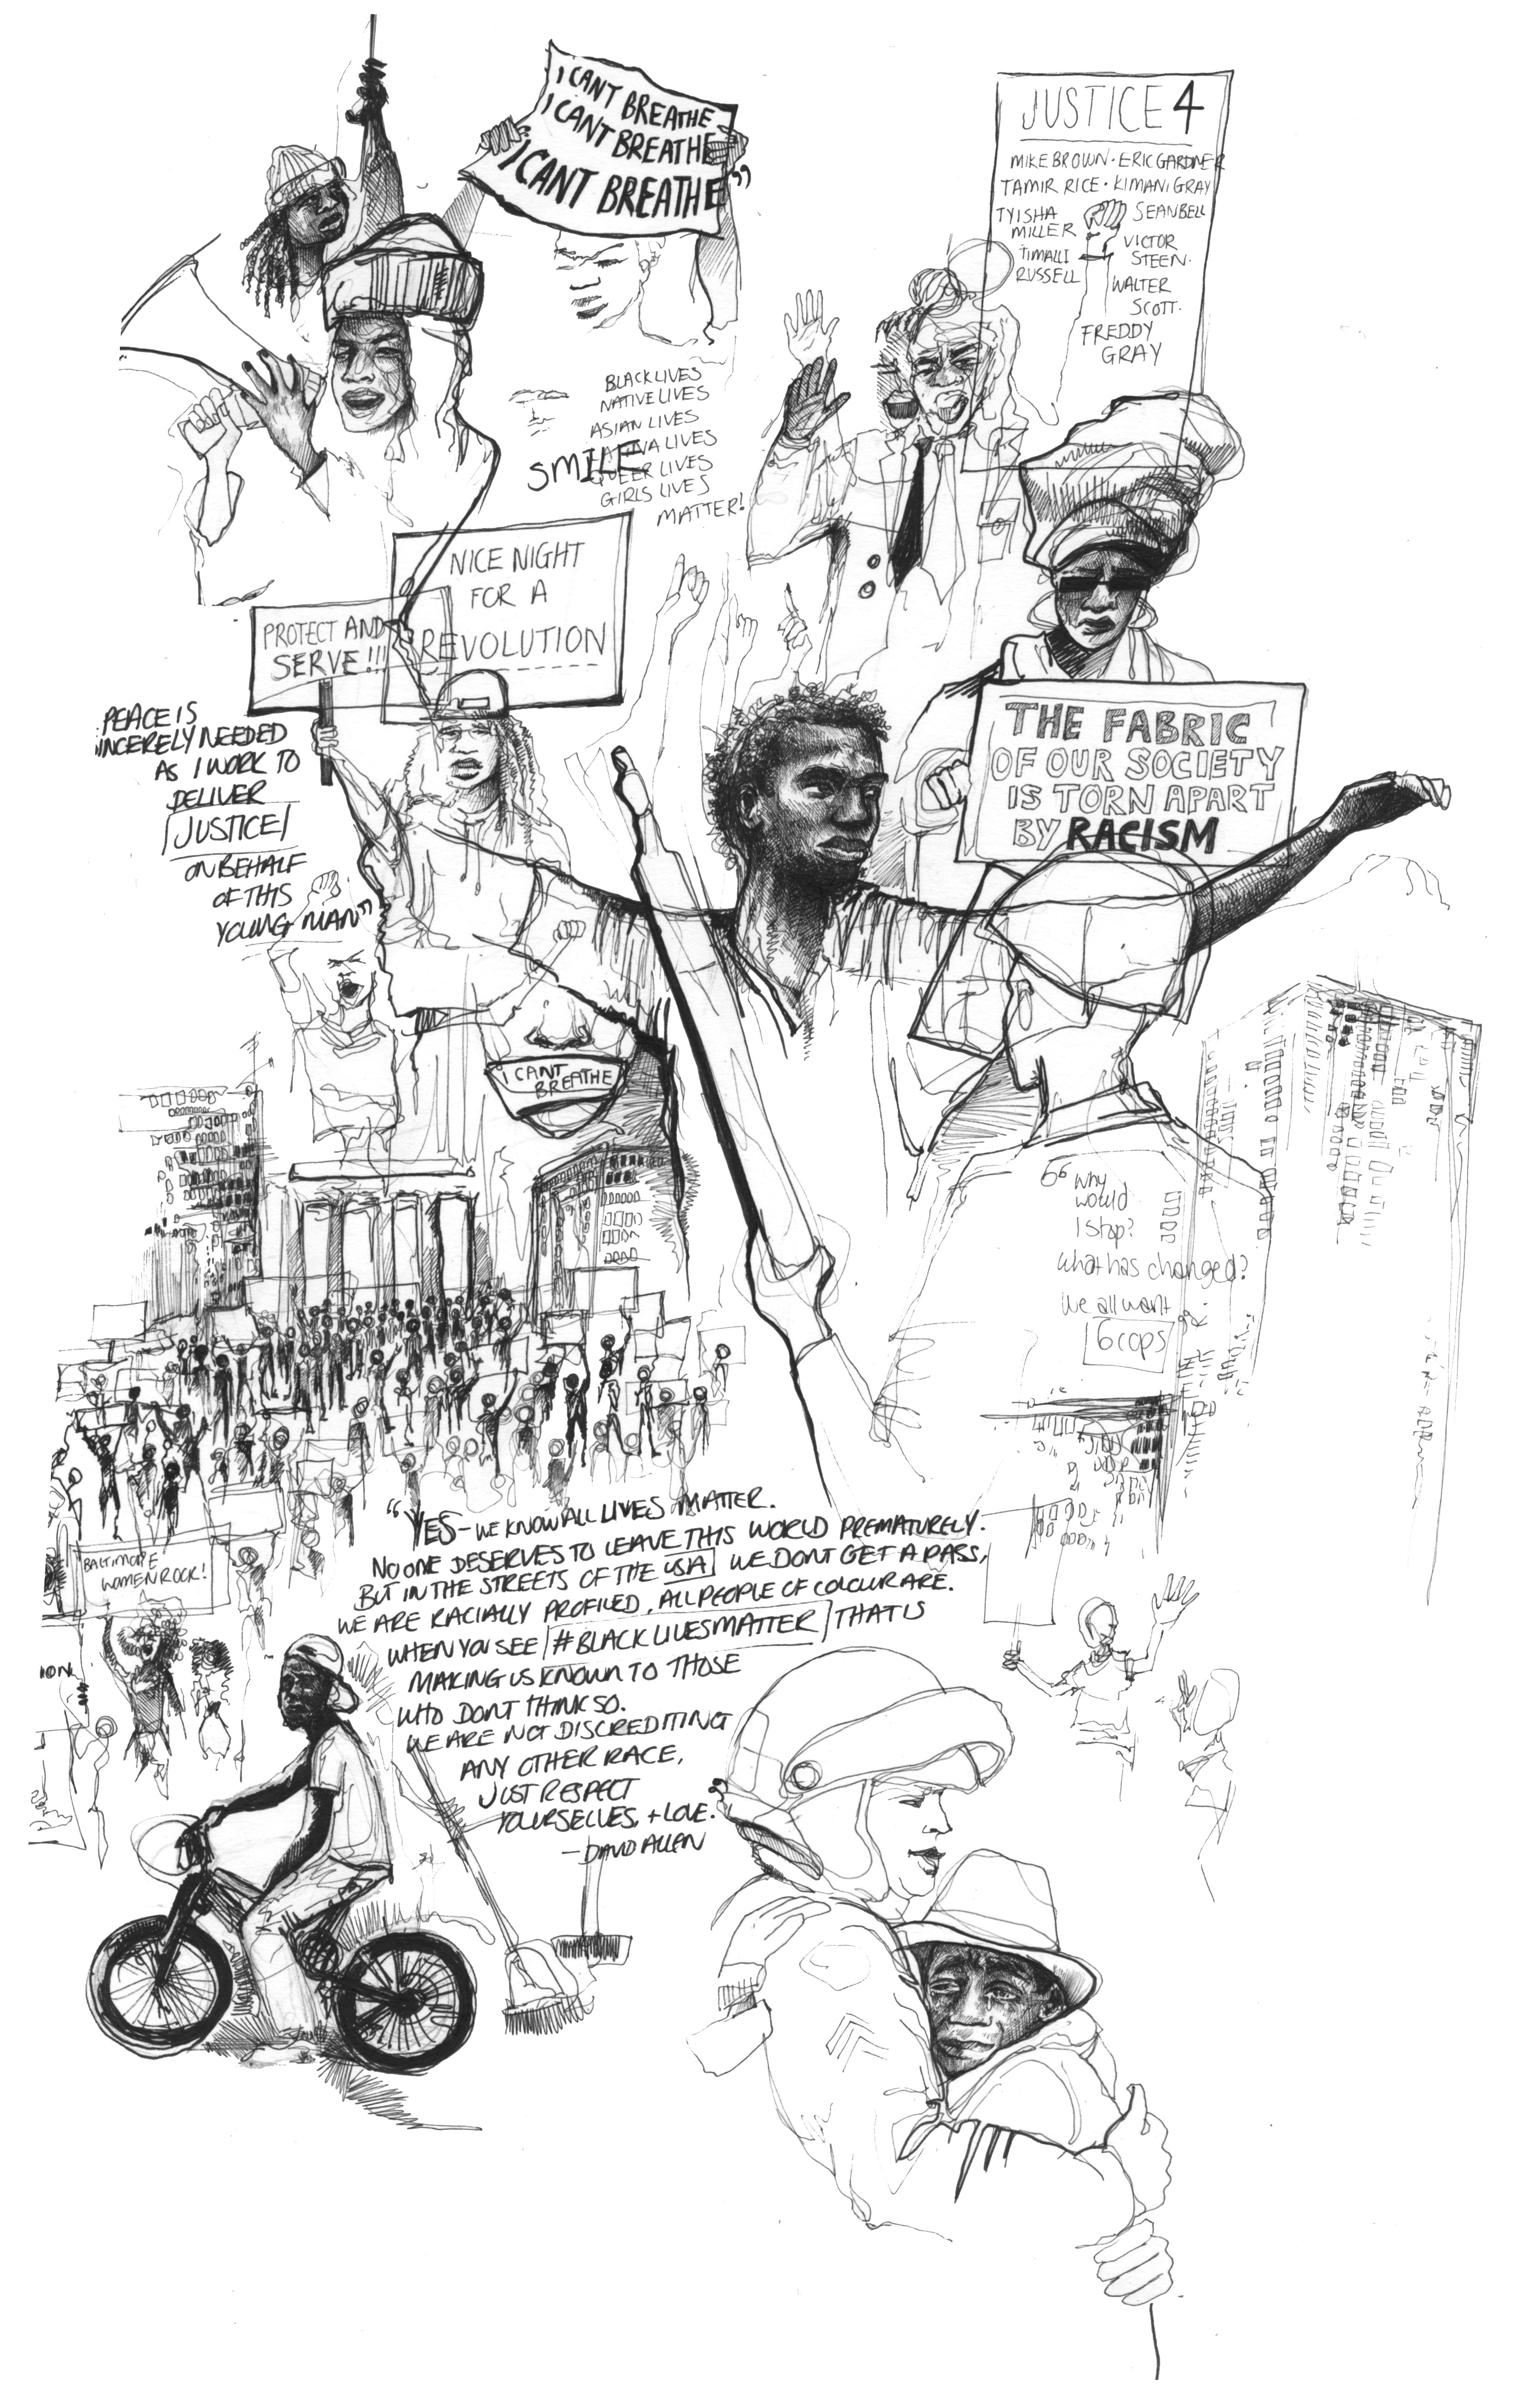 I CANT BREATHE
I CANT BREATHE
I CANT BREATHE"
JUSTICE 4
MIKE BROWN · ERIC GARDNER
TAMIR RICE · KIMANI GRAY
TYISHA
MILLER
SEAN BELL
TIMALLI
RUSSELL
VICTOR
STEEN.
WALTER
SCOTT.
FREDDY
GRAY
BLACK LIVES
NATIVE LIVES
ASIAN LIVES
LIVES
QUEER LIVES
GIRLS LIVES
MATTER!
SMILE
NICE NIGHT
FOR A
REVOLUTION
PROTECT AND
SERVE!!!
THE FABRIC
OF OUR SOCIETY
IS TORN APART
BY RACISM
PEACE IS
SINCERELY NEEDED
AS I WORK TO
DELIVER
JUSTICE
ON BEHALF
OF THIS
YOUNG MAN"
I CANT
BREATHE
"why
would
I stop?
what has changed?
we all want
6 cops
"YES - WE KNOW ALL LIVES MATTER.
NO ONE DESERVES TO LEAVE THIS WORLD PREMATURELY.
BUT IN THE STREETS OF THE USA WE DONT GET A PASS,
WE ARE RACIALLY PROFILED, ALL PEOPLE OF COLOUR ARE.
WHEN YOU SEE #BLACKLIVESMATTER THAT IS
MAKING US KNOWN TO THOSE
WHO DONT THINK SO.
WE ARE NOT DISCREDITING
ANY OTHER RACE,
JUST RESPECT
YOURSELVES, + LOVE."
- DAVID ALLEN
BALTIMORE
WOMEN ROCK!